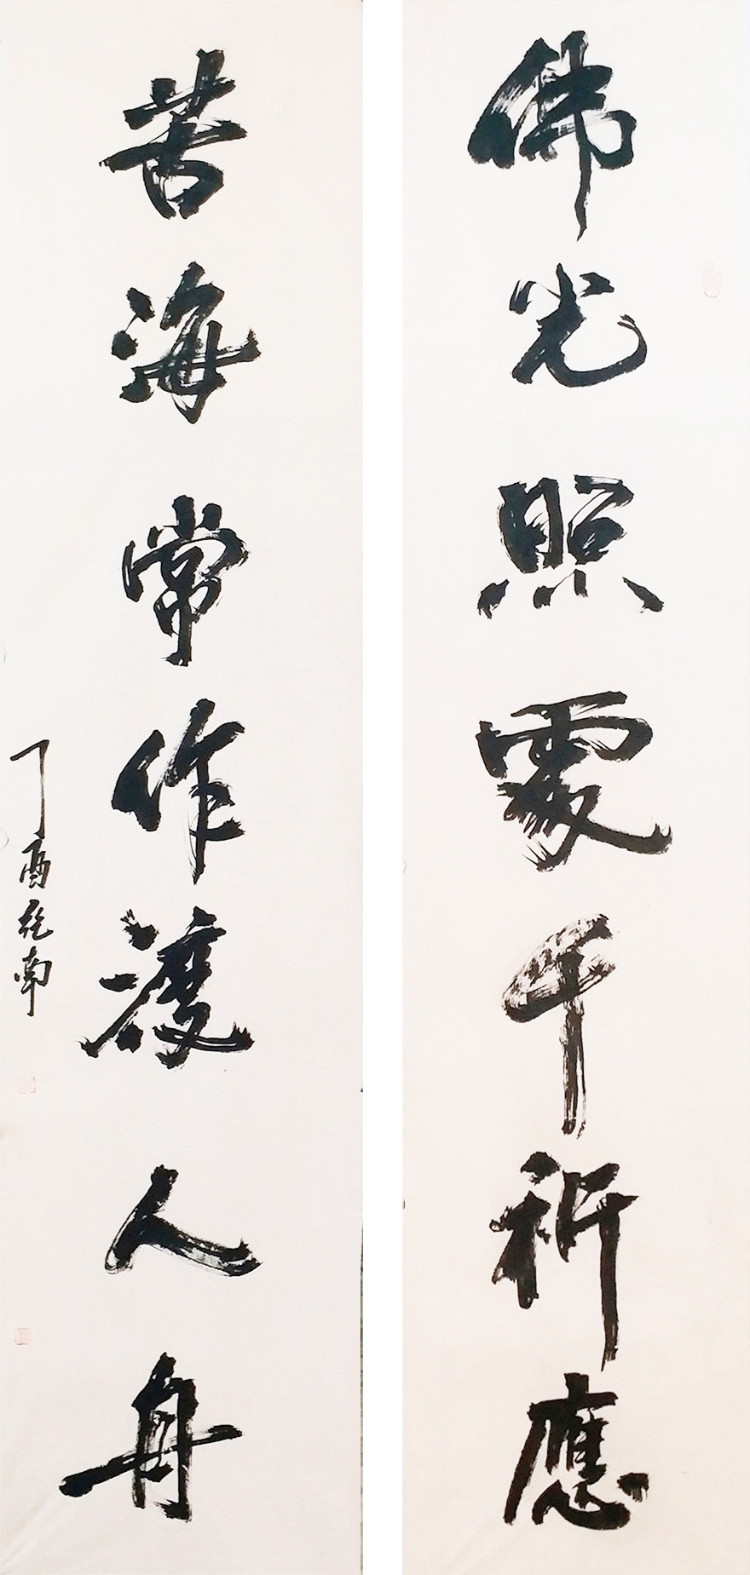 佛光照處千祈應
苦海常作渡人舟
丁酉 南